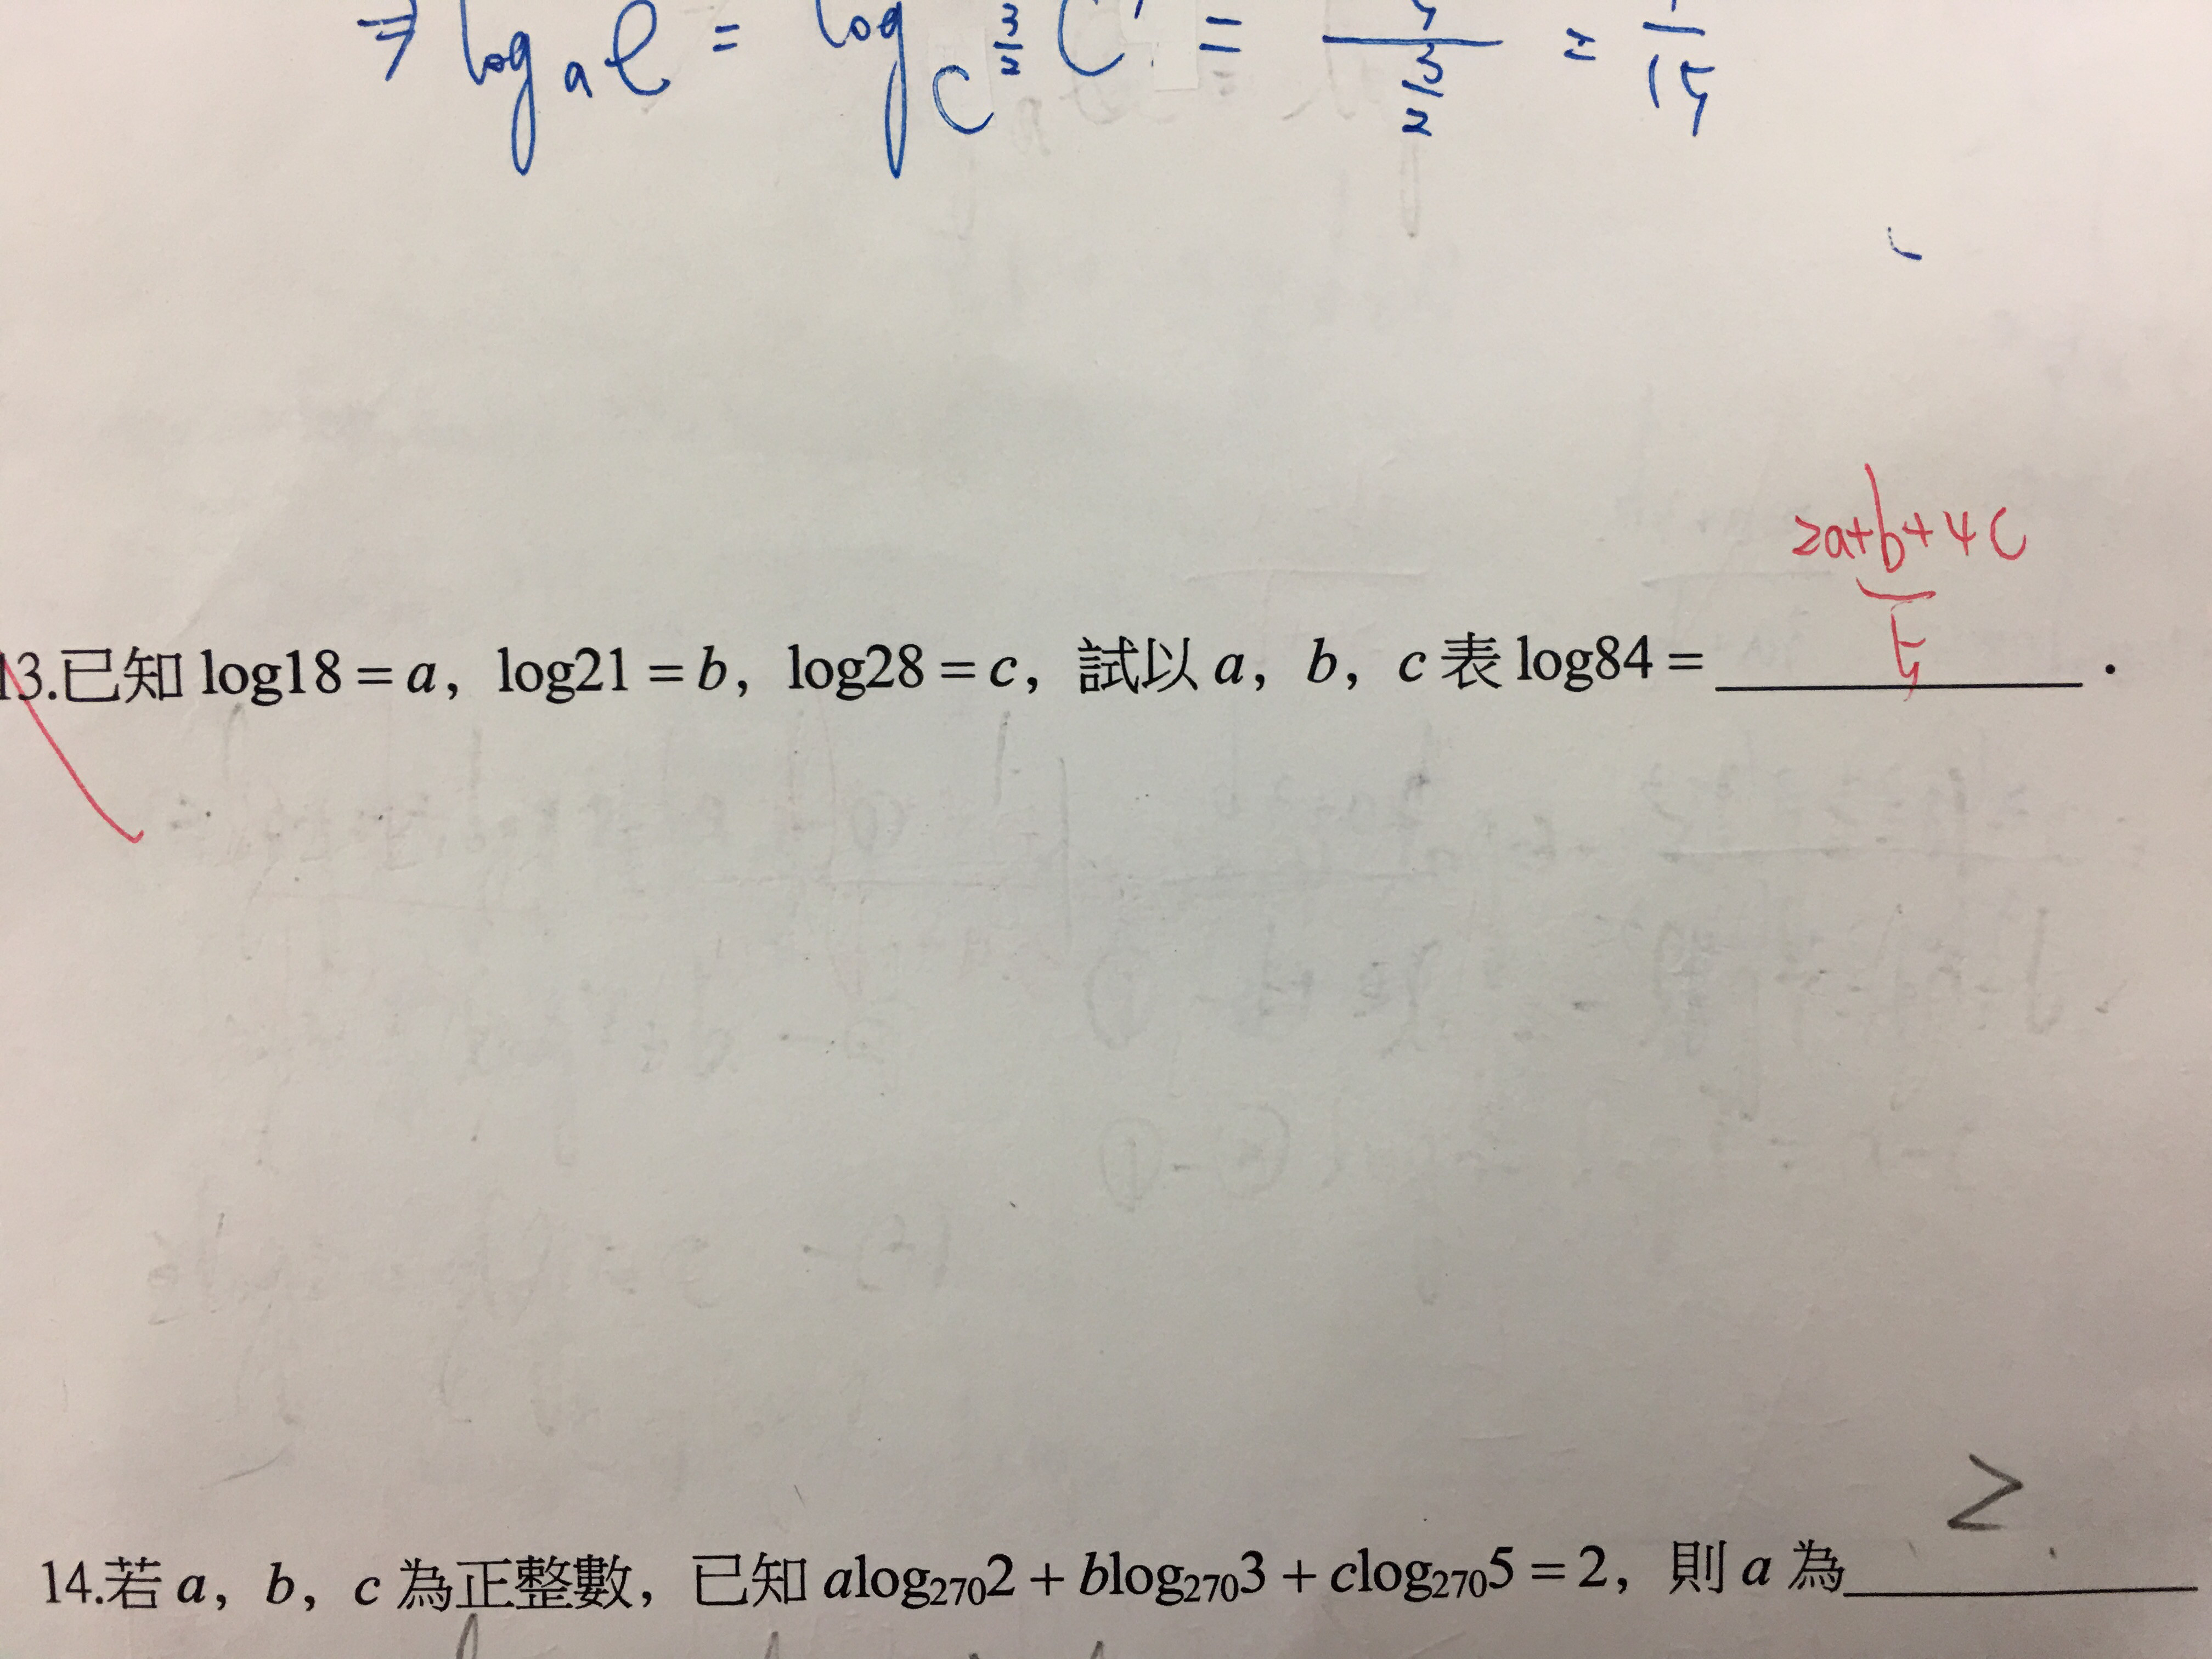 ⇒ log_a e = log_{c^{3/2}} c = \frac{}{\frac{3}{2}} = \frac{}{15}
2a+b+4c
5
13.已知 log18 = a，log21 = b，log28 = c，試以 a，b，c 表 log84 = ________．
2
14.若 a，b，c 為正整數，已知 alog₂₇₀2 + blog₂₇₀3 + clog₂₇₀5 = 2，則 a 為________